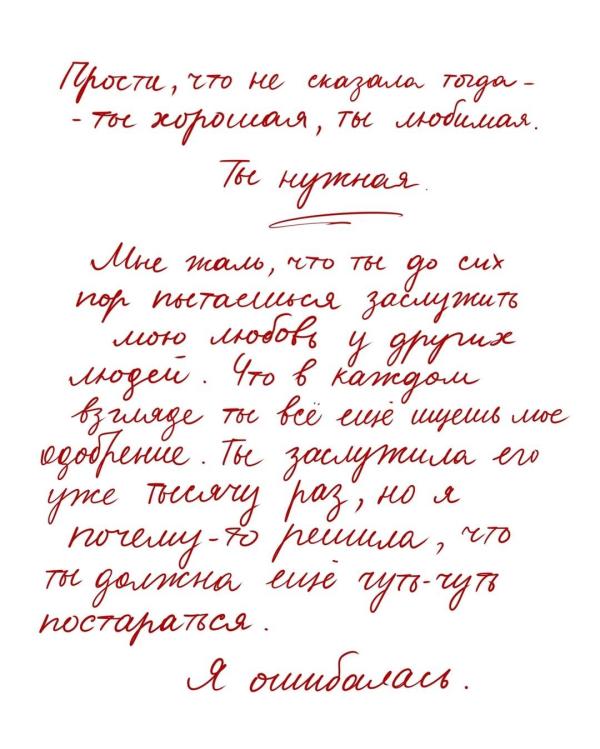 Прости, что не сказала тогда -
- ты хорошая, ты любимая.
Ты нужная.
Мне жаль, что ты до сих
пор пытаешься заслужить
мою любовь у других
людей. Что в каждом
взгляде ты всё ещё ищешь мое
одобрение. Ты заслужила его
уже тысячу раз, но я
почему-то решила, что
ты должна ещё чуть-чуть
постараться.
Я ошибалась.